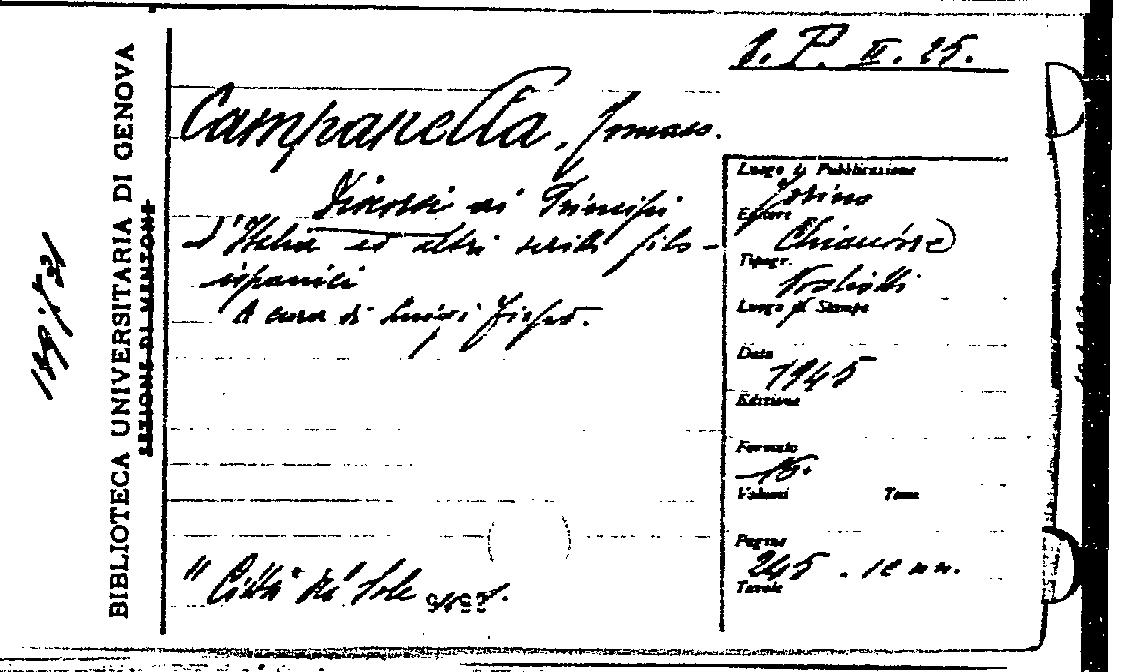 BIBLIOTECA UNIVERSITARIA DI GENOVA
SEZIONE DI MENTONE
P. II. 25.
Campanella, Tomaso.
Discorsi ai Principi
d'Italia ed altri scritti filo-
ispanici
A cura di Luigi Firpo.
"Città del Sole
Luogo di Pubblicazione
Torino
Editore
Chiantore
Tipogr.
Luogo di Stampa
Data
1945
Edizione
Formato
Volumi Tomo
Pagine
245
Tavole